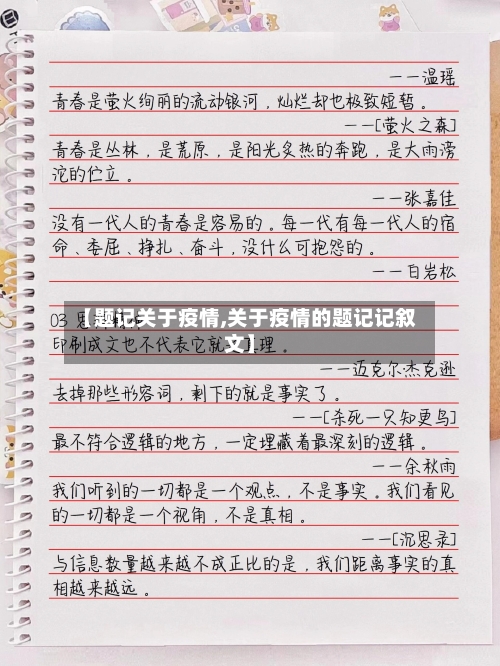 ——温瑶
青春是萤火绚丽的流动银河，灿烂却也极致短暂。
——[萤火之森]
青春是丛林，是荒原，是阳光炙热的奔跑，是大雨滂
沱的伫立。
——张嘉佳
没有一代人的青春是容易的。每一代有每一代人的宿
命、委屈、挣扎、奋斗，没什么可抱怨的。
——白岩松
03
【题记关于疫情,关于疫情的题记记叙
文】
印刷成文也不代表它就 理。
——迈克尔·杰克逊
去掉那些形容词，剩下的就是事实了。
——[杀死一只知更鸟]
最不符合逻辑的地方，一定埋藏着最深刻的逻辑。
——余秋雨
我们听到的一切都是一个观点，不是事实。我们看见
的一切都是一个视角，不是真相。
——[沉思录]
与信息数量越来越不成正比的是，我们距离事实的真
相越来越远。